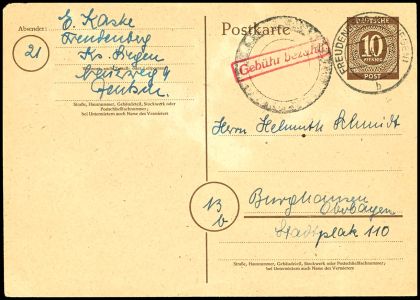 Absender:
E. Kaske
Freudenberg
21
Kr. Siegen
Straße, Hausnummer, Gebäudeteil, Stockwerk oder
Postschließfachnummer;
bei Untermietern auch Name des Vermieters
Postkarte
Gebühr bezahlt
DEUTSCHE
10
PFENNIG
POST
FREUDEN
b
Herrn Helmuth Schmidt
13
b
Burghausen
Oberbayern
Stadtplatz 110
Straße, Hausnummer, Gebäudeteil, Stockwerk oder Postschließfachnummer;
bei Untermietern auch Name des Vermieters